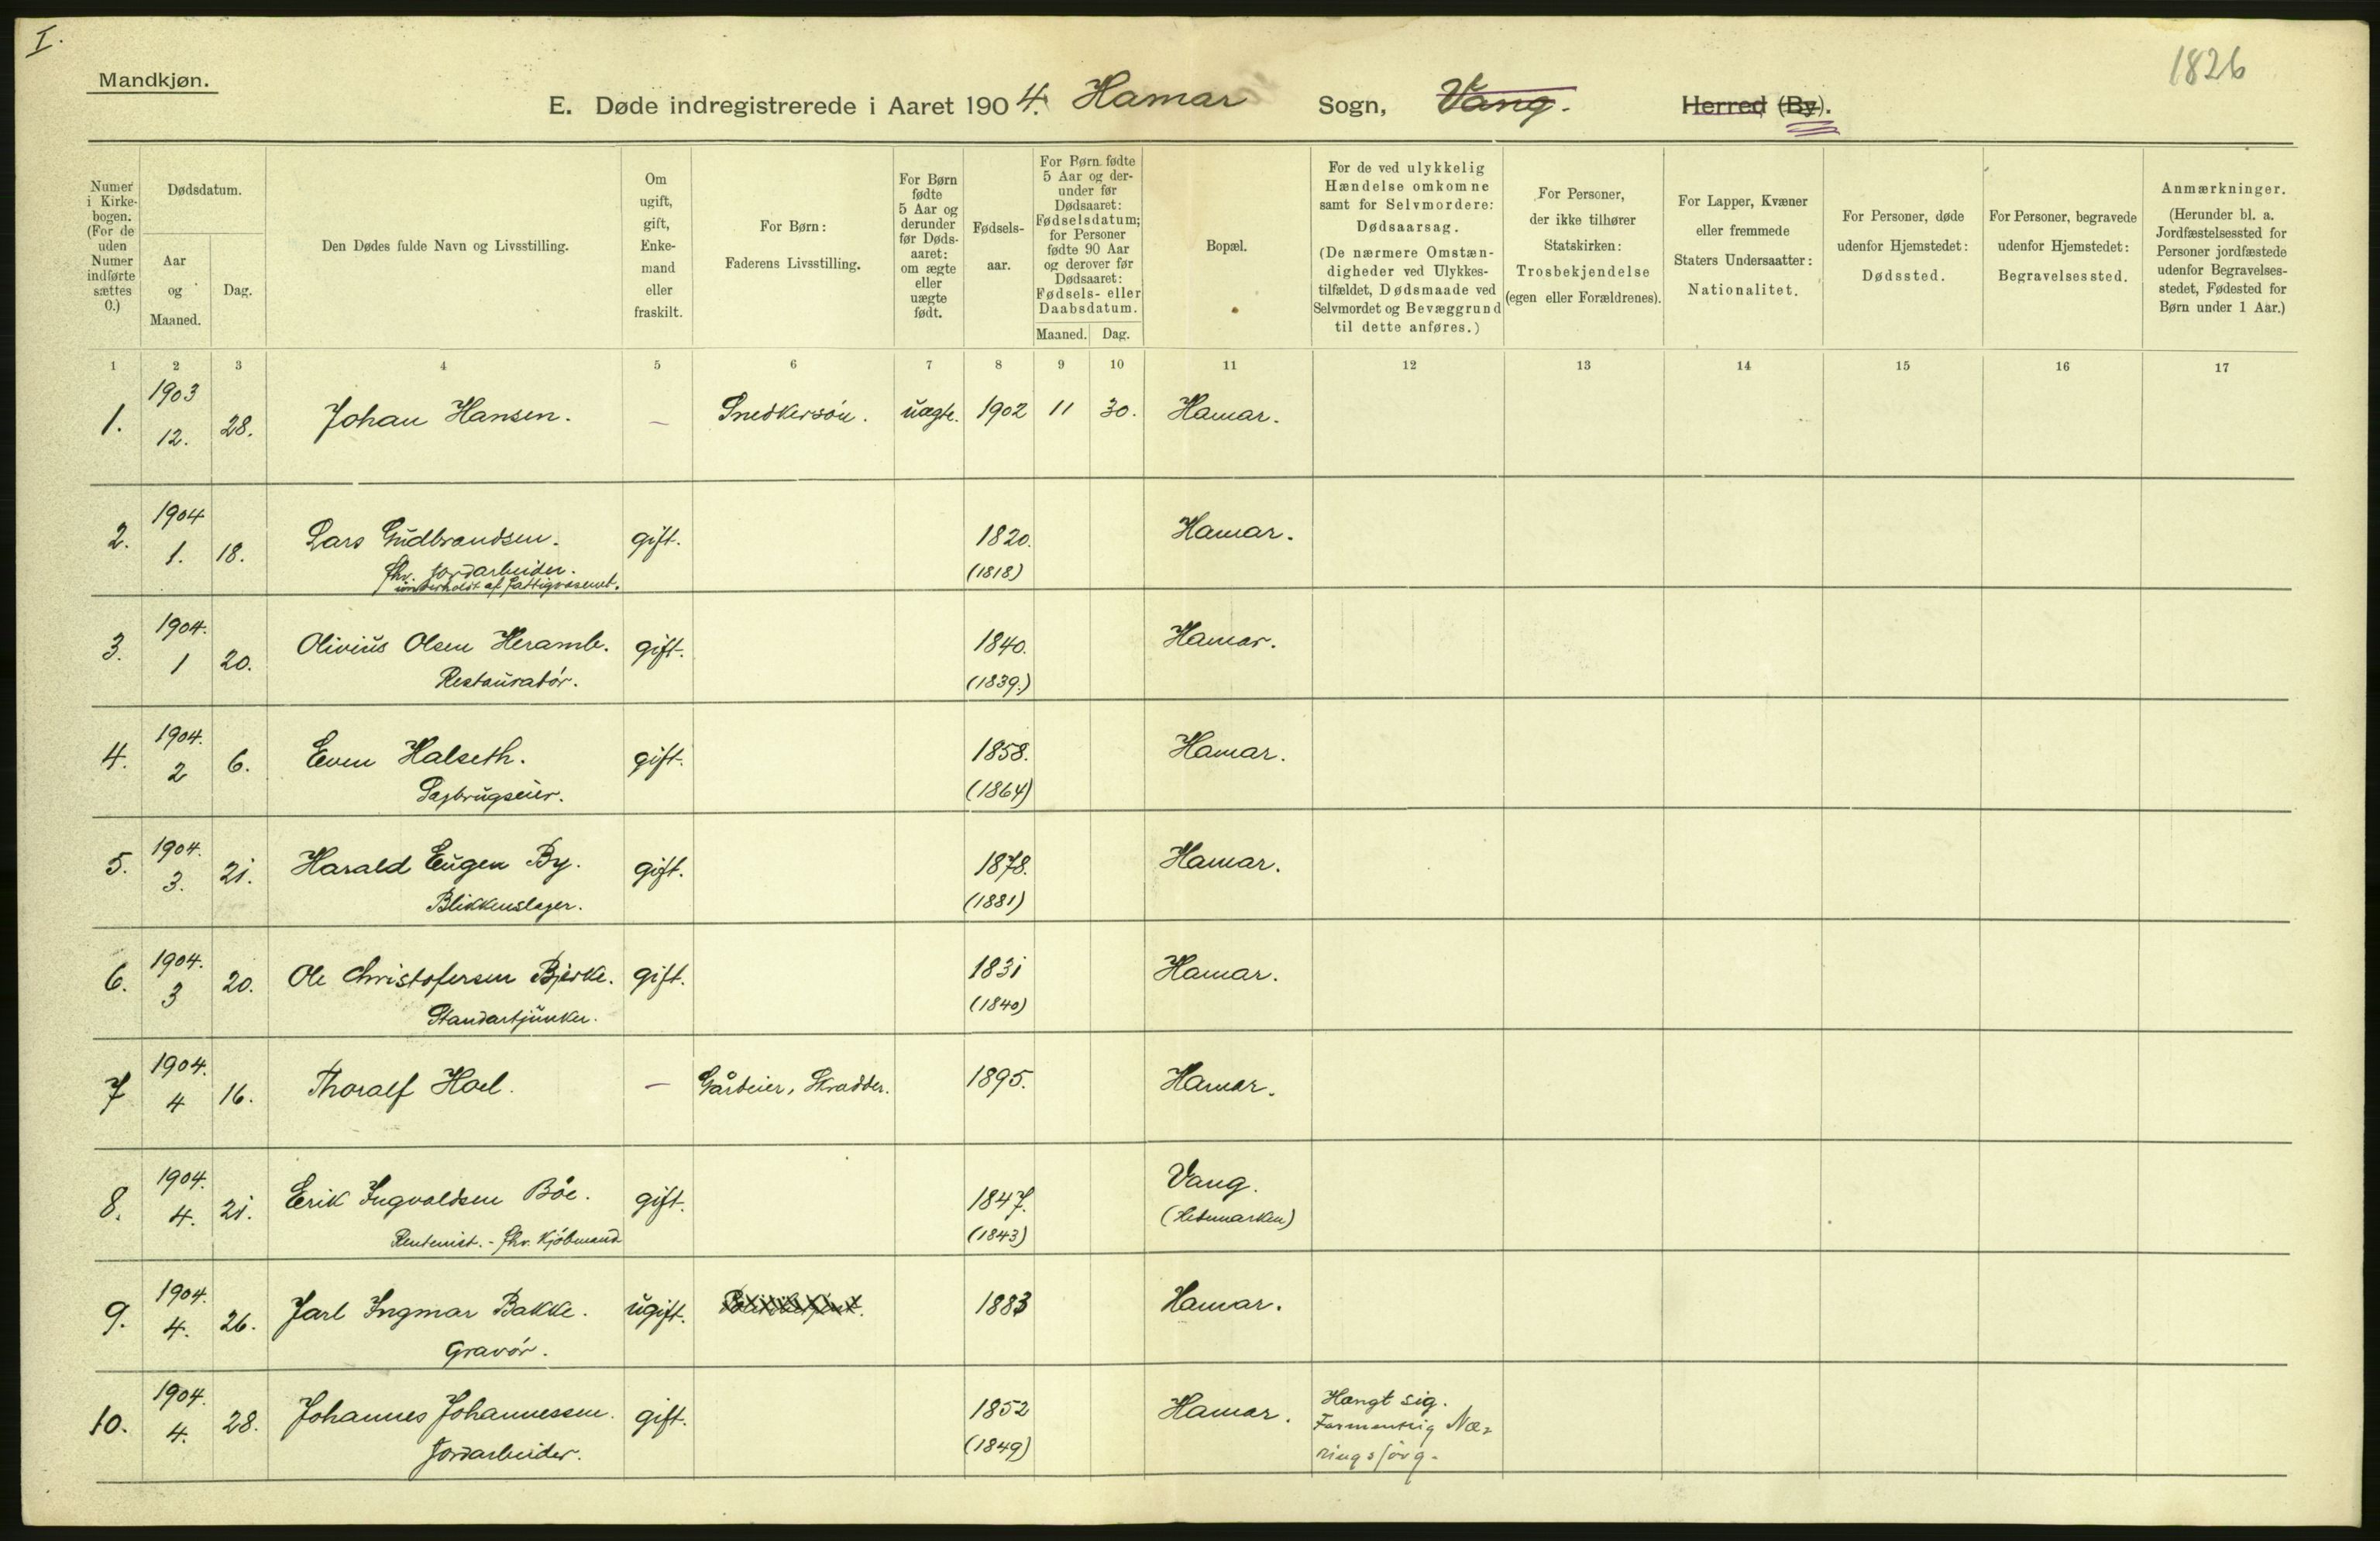 I.
1826
Mandkjøn.
E. Døde indregistrerede i Aaret 1904. Hamar Sogn, Vang. Herred (By).
Numer i Kirkebogen. (For de uden Numer indførte sættes 0.)
Dødsdatum.
Aar og Maaned.
Dag.
Den Dødes fulde Navn og Livsstilling.
Om ugift, gift, Enkemand eller fraskilt.
For Børn: Faderens Livsstilling.
For Børn fødte 5 Aar og derunder før Dødsaaret: om ægte eller uægte født.
Fødselsaar.
For Børn fødte 5 Aar og derunder før Dødsaaret: Fødselsdatum; for Personer fødte 90 Aar og derover før Dødsaaret: Fødsels- eller Daabsdatum.
Maaned. Dag.
Bopæl.
For de ved ulykkelig Hændelse omkomne samt for Selvmordere: Dødsaarsag. (De nærmere Omstændigheder ved Ulykkestilfældet, Dødsmaade ved Selvmordet og Bevæggrund til dette anføres.)
For Personer, der ikke tilhører Statskirken: Trosbekjendelse (egen eller Forældrenes).
For Lapper, Kvæner eller fremmede Staters Undersaatter: Nationalitet.
For Personer, døde udenfor Hjemstedet: Dødssted.
For Personer, begravede udenfor Hjemstedet: Begravelsessted.
Anmærkninger. (Herunder bl. a. Jordfæstelsessted for Personer jordfæstede udenfor Begravelsesstedet, Fødested for Børn under 1 Aar.)
1 2 3 4 5 6 7 8 9 10 11 12 13 14 15 16 17
1903
1. 12. 28. Johan Hansen. — Snedkersön. uægte. 1902 11 30. Hamar.
1904
2. 1. 18. Lars Gudbrandsen. gift. 1820. Hamar.
fhv. Jordarbeider. (1818)
underholdt af Fattigvæsenet.
1904.
3. 1 20. Olivius Olsen Heramb. gift. 1840. Hamar.
Restauratör. (1839.)
1904.
4. 2 6. Even Halseth. gift. 1858. Hamar.
Sagbrugseier. (1864)
1904.
5. 3. 21. Harald Eugen By. gift. 1878. Hamar.
Blikkenslager. (1881)
1904.
6. 3 20. Ole Christofersen Bjerke. gift. 1831 Hamar.
Standartjunker. (1840)
1904.
7 4 16. Thoralf Hoel. — Gårdeier, Skrædder. 1895. Hamar.
1904.
8. 4. 21. Erik Ingvaldsen Böe. gift. 1847. Vang.
Rentenist. - fhv. Kjöbmand (1843) (Hedemarken)
1904.
9. 4. 26. Jarl Ingmar Bakke. ugift. 1883 Hamar.
Gravör.
1904.
10. 4. 28. Johannes Johannessen. gift. 1852 Hamar. Hængt sig.
Jordarbeider. (1849) Formentlig Næ-
ringssörg.